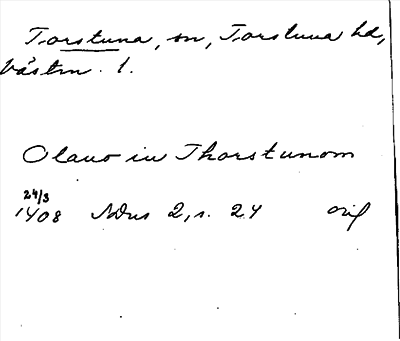 Torstuna, sn, Torstuna hd,
Västm. l.
Olauo in Thorstunom
24/3
1408 NDns 2, s. 24 orig